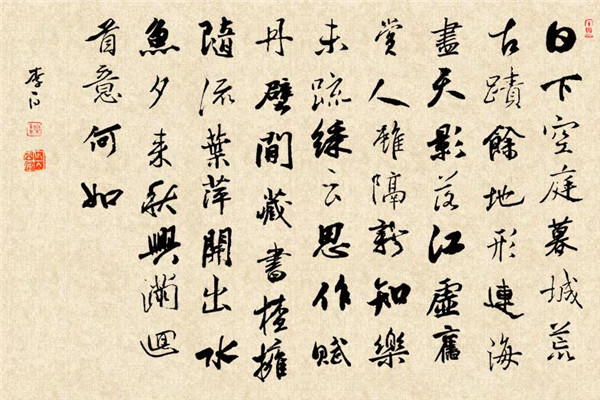 日下空庭暮城荒
古蹟餘地形連海
盡天影落江虛舊
賞人雖隔新知樂
未疏綵云思作賦
丹壁間藏書楂擁
隨流葉萍開出水
魚夕来秋興滿迴
首意何如
李